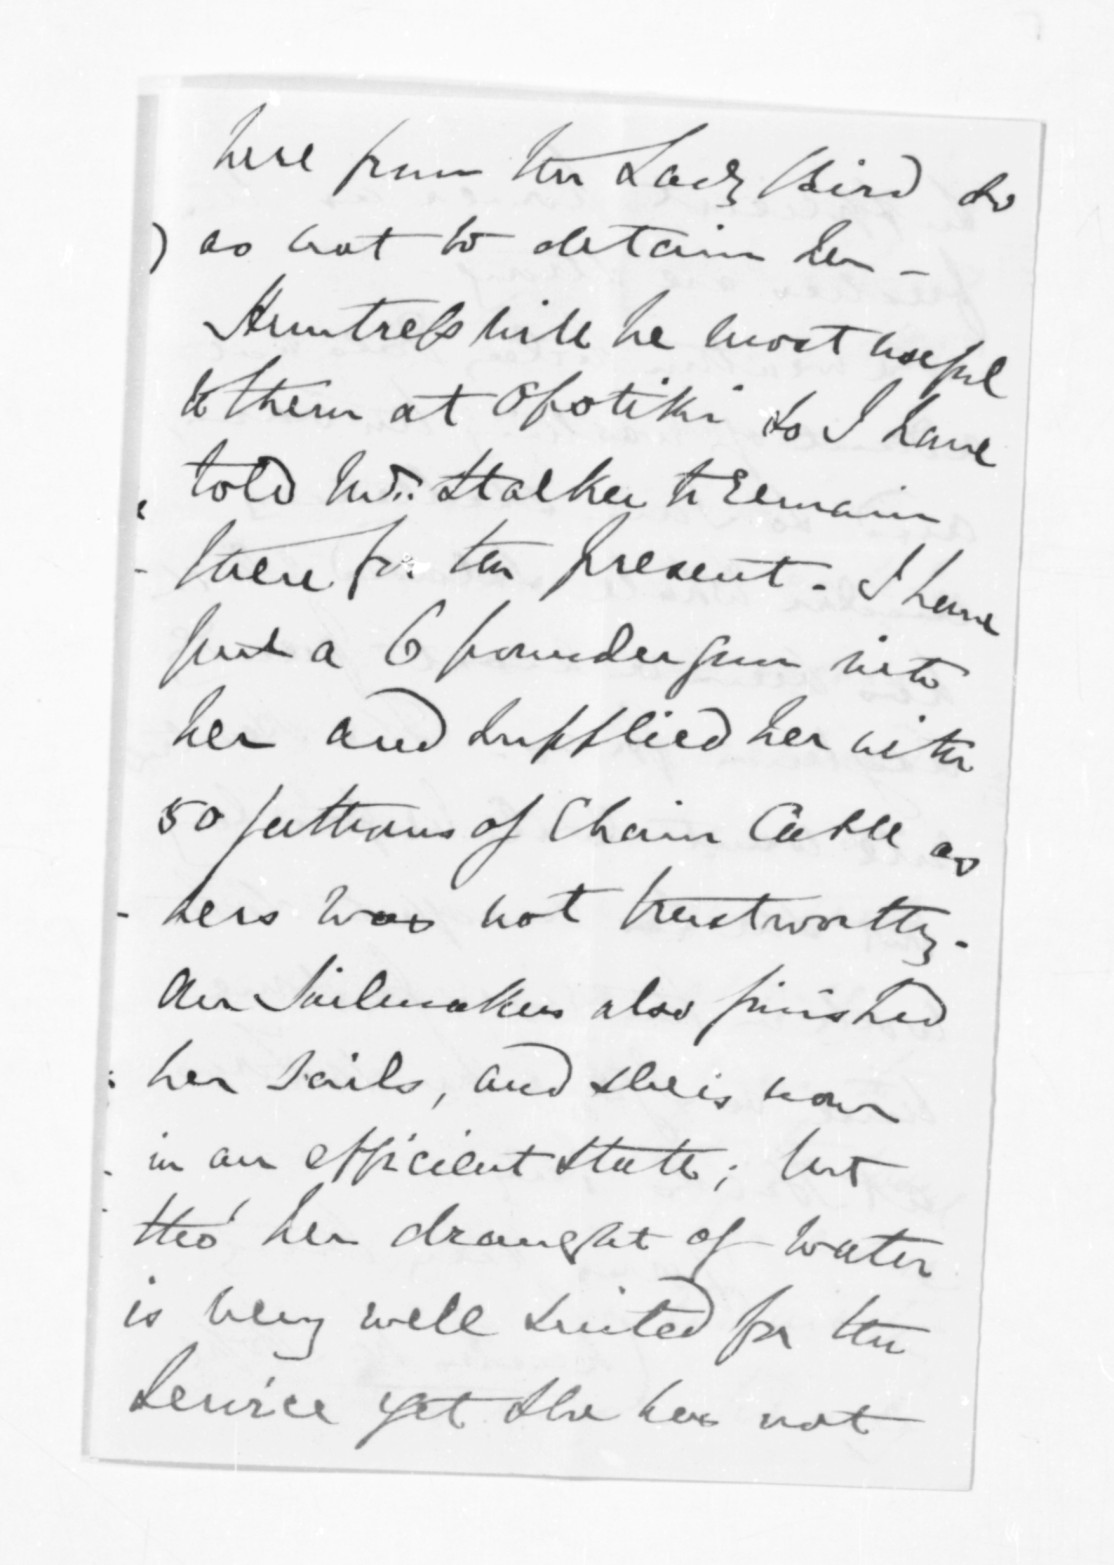 here from the Lady Bird so
as not to detain her –
Huntress will be most useful
to them at Opotiki so I have
told Mr. Stalker to remain
there for the present – I have
put a 6 pounder gun into
her and supplied her with
50 fathoms of Chain Cable as
hers was not trustworthy –
our Sailmakers also finished
her sails, and she is now
in an efficient state; but
tho' her draught of water
is very well suited for the
Service yet she has not